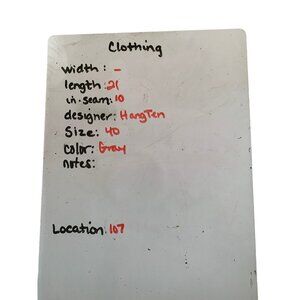 Clothing
width: -
length: 21
in-seam: 10
designer: HangTen
Size: 40
Color: Gray
notes:
Location: 107